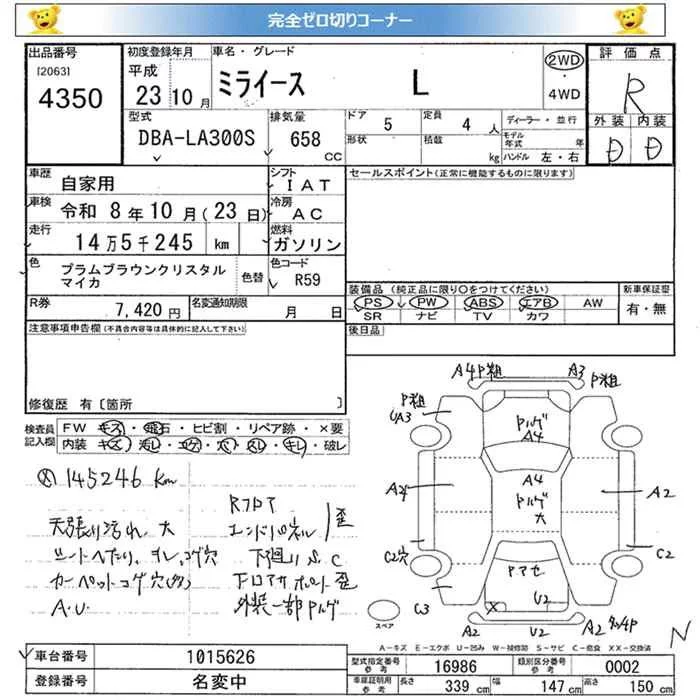 完全ゼロ切りコーナー
出品番号
[2063]
4350
初度登録年月
平成
23 10 月
車名・グレード
ミライース L
2WD
・
4WD
評価点
R
外装 内装
D D
型式
DBA-LA300S
排気量
658
CC
ドア 5
定員 4 人
形状
積載 kg
ディーラー・並行
モデル年式 年
ハンドル 左・右
車歴
自家用
シフト
I AT
車検
令和 8年10月(23日)
冷房
AC
走行
14万5千245 km
燃料
ガソリン
色
プラムブラウンクリスタル
マイカ
色替
色コード
R59
R券
7,420 円
名変通知期限
月 日
セールスポイント(正常に機能するものに限ります)
装備品 (純正品に限り○をつけてください)
新車保証書
PS PW ABS エアB AW
有・無
SR ナビ TV カワ
後日品
注意事項申告欄(不具合内容等は具体的に記入して下さい)
修復歴 有〔箇所 〕
検査員
記入欄
FW キズ・飛石・ヒビ割・リペア跡・×要
内装 キズ・汚レ・コゲ・穴・スレ・キレ・破レ
145246 km
天張り汚れ大
シートヘたり、ヨレ、コゲ穴
カーペットコゲ穴
A.U
Rフロア
エンドパネル 歪
下廻りS.C
下ロアサポート歪
外装一部Pハゲ
A4P粗
A3
P粗
P粗
UA3
Pハゲ
A4
A4
Pハゲ
大
A2
C2穴
C2
Pアセ
C3
X
U2
A2
U2
A2
N
スペア
A-キズ E-エクボ U-凹み W-補修跡 S-サビ C-腐食 XX-交換済
車台番号
1015626
登録番号
名変中
型式指定番号
参考
16986
類別区分番号
参考
0002
車庫証明用
参考
長さ 339 cm
幅 147 cm
高さ 150 cm